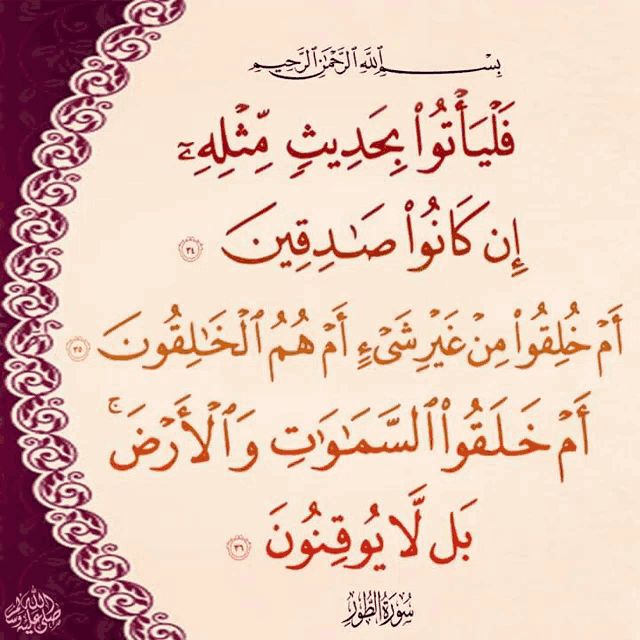 بِسْمِ ٱللَّهِ ٱلرَّحْمَٰنِ ٱلرَّحِيمِ
فَلْيَأْتُوا۟ بِحَدِيثٍ مِّثْلِهِۦٓ
إِن كَانُوا۟ صَٰدِقِينَ ٣٤
أَمْ خُلِقُوا۟ مِنْ غَيْرِ شَىْءٍ أَمْ هُمُ ٱلْخَٰلِقُونَ ٣٥
أَمْ خَلَقُوا۟ ٱلسَّمَٰوَٰتِ وَٱلْأَرْضَ ۚ
بَل لَّا يُوقِنُونَ ٣٦
سُورَةُ الطُّورِ
صلى الله عليه وسلم